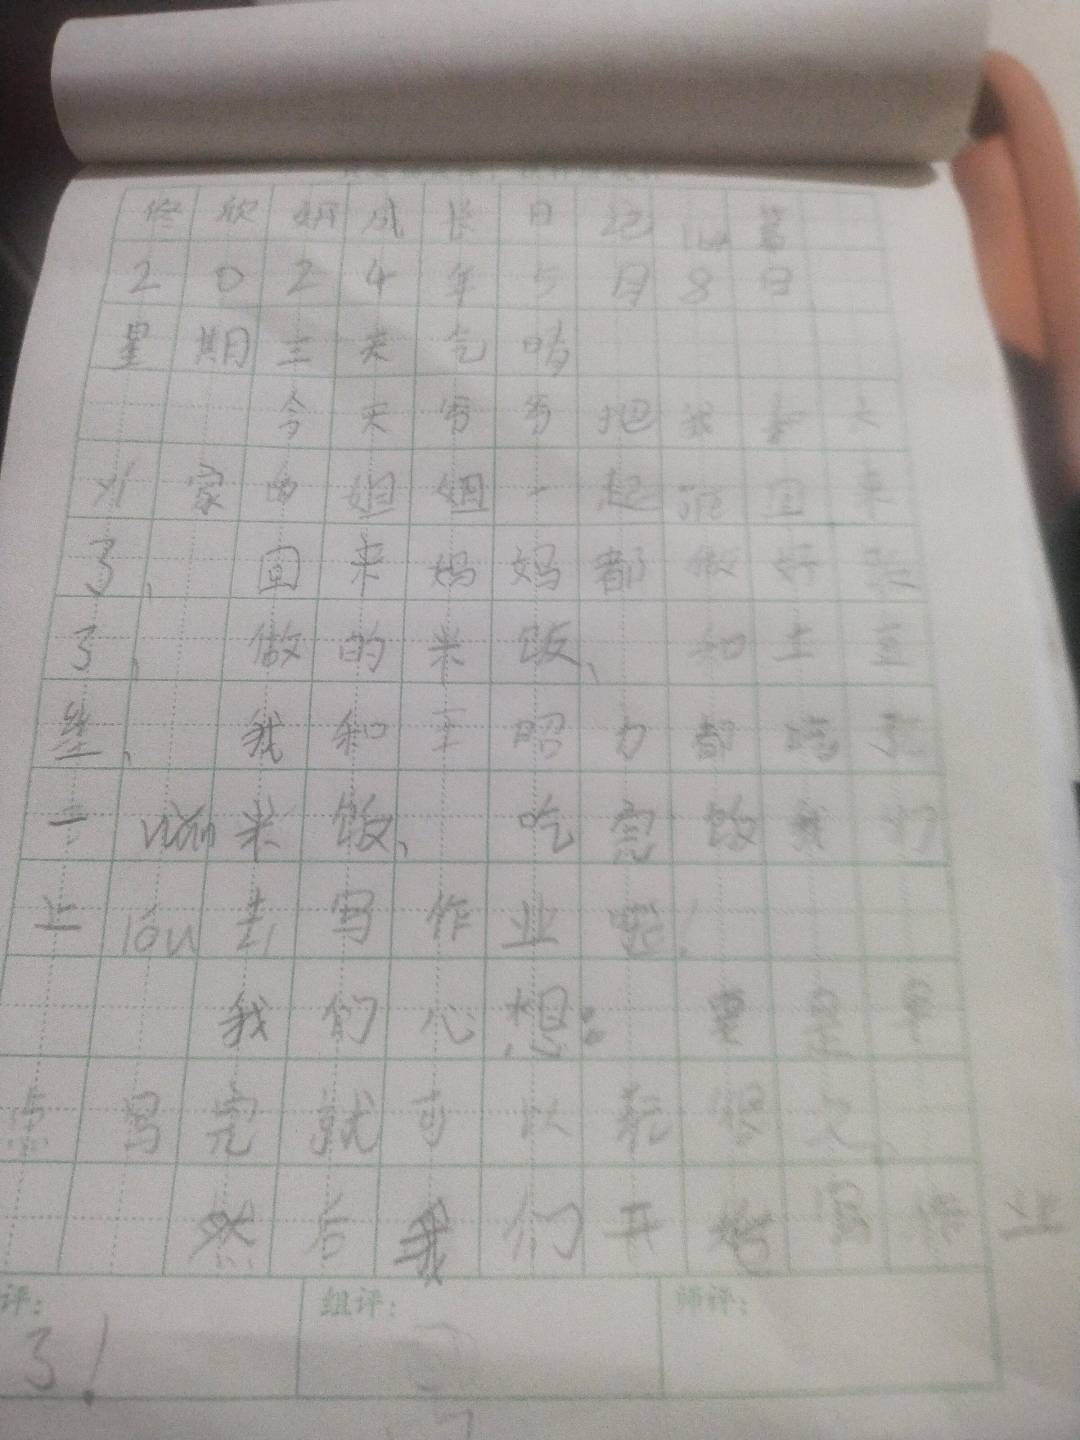 欣妍成长日记 篇
2024年5月8日
星期三天气晴
今天爷爷把我和大
家的姐姐一起 回来
了、回来妈妈都做好
了、做的米饭、和土豆
丝、我和王昭 都
一 wǎn米饭、吃完饭我们
上lóu去写作业啦!
我们心想:要是早
点写完就可以玩很久、
然后我们开始写作业
评: 组评: 师评:
了!